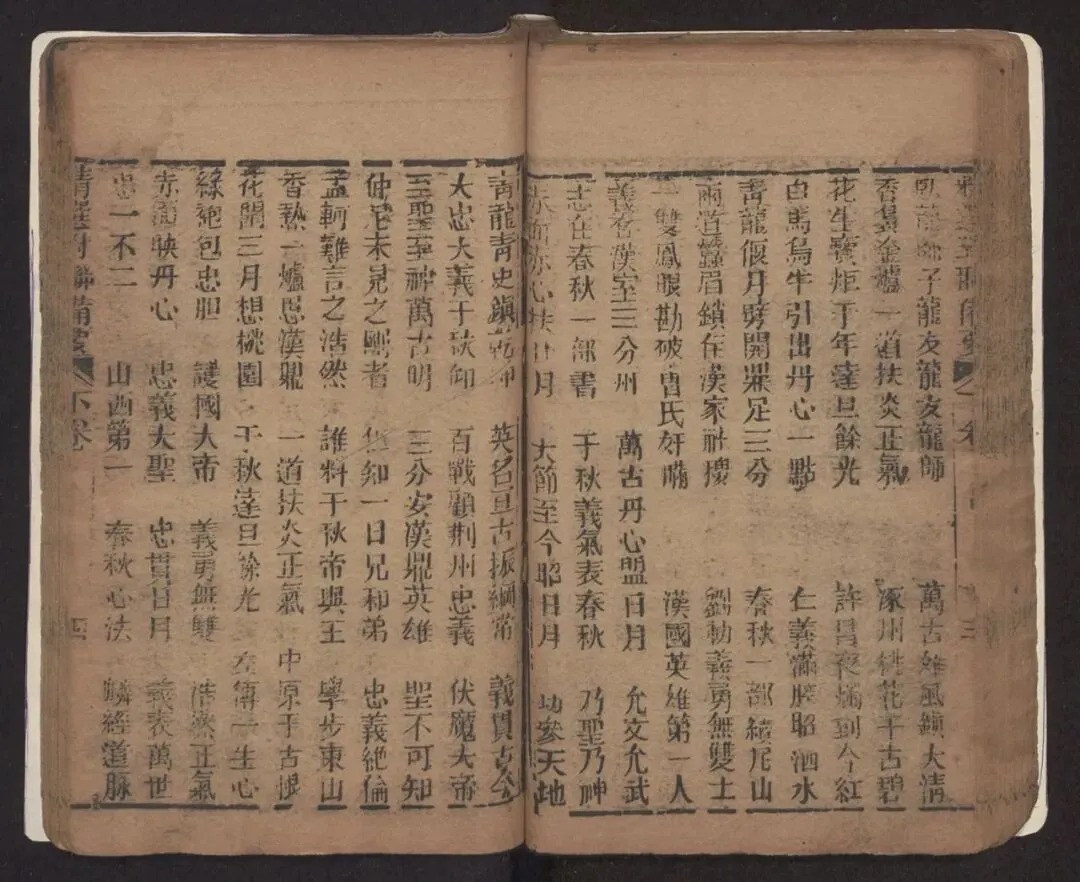 卷 三
子龍友龍友龍師 萬古雄風鎮大清
香爇金爐一道扶炎正氣 涿州桃花千古碧
花生寶炬千年達旦餘光 許昌夜燭到今紅
白馬烏牛引出丹心一點 仁義滿腔昭泗水
青龍偃月劈開鼎足三分 春秋一部續尼山
兩道蠶眉鎖住漢家社稷 義勇無雙士
一雙鳳眼勘破曹氏奸瞞 漢國英雄第一人
義存漢室三分州 萬古丹心盟日月 允文允武
志在春秋一部書 千秋義氣表春秋 乃聖乃神
赤面赤心扶日月 大節至今昭日月 功參天地
青龍青史鎮乾坤 英名亘古振綱常 義貫古今
大忠大義千秋仰 百戰顧荆州忠義 伏魔大帝
至聖至神萬古明 三分安漢鼎英雄 聖不可知
仲尼未見之剛者 但知一日兄和弟 忠義絕倫
孟軻難言之浩然 誰料千秋帝與王 學步東山
香熱一爐思漢鼎 一道扶炎正氣 中原千古恨
花開三月想桃園 千秋達旦餘光 左傳一生心
綠袍包忠胆 護國大帝 義勇無雙 浩然正氣
赤面映丹心 忠義大聖 忠貫日月 義表萬世
忠一不二 山西第一 春秋心法 麟經道脉
精選對聯備要 下卷 四